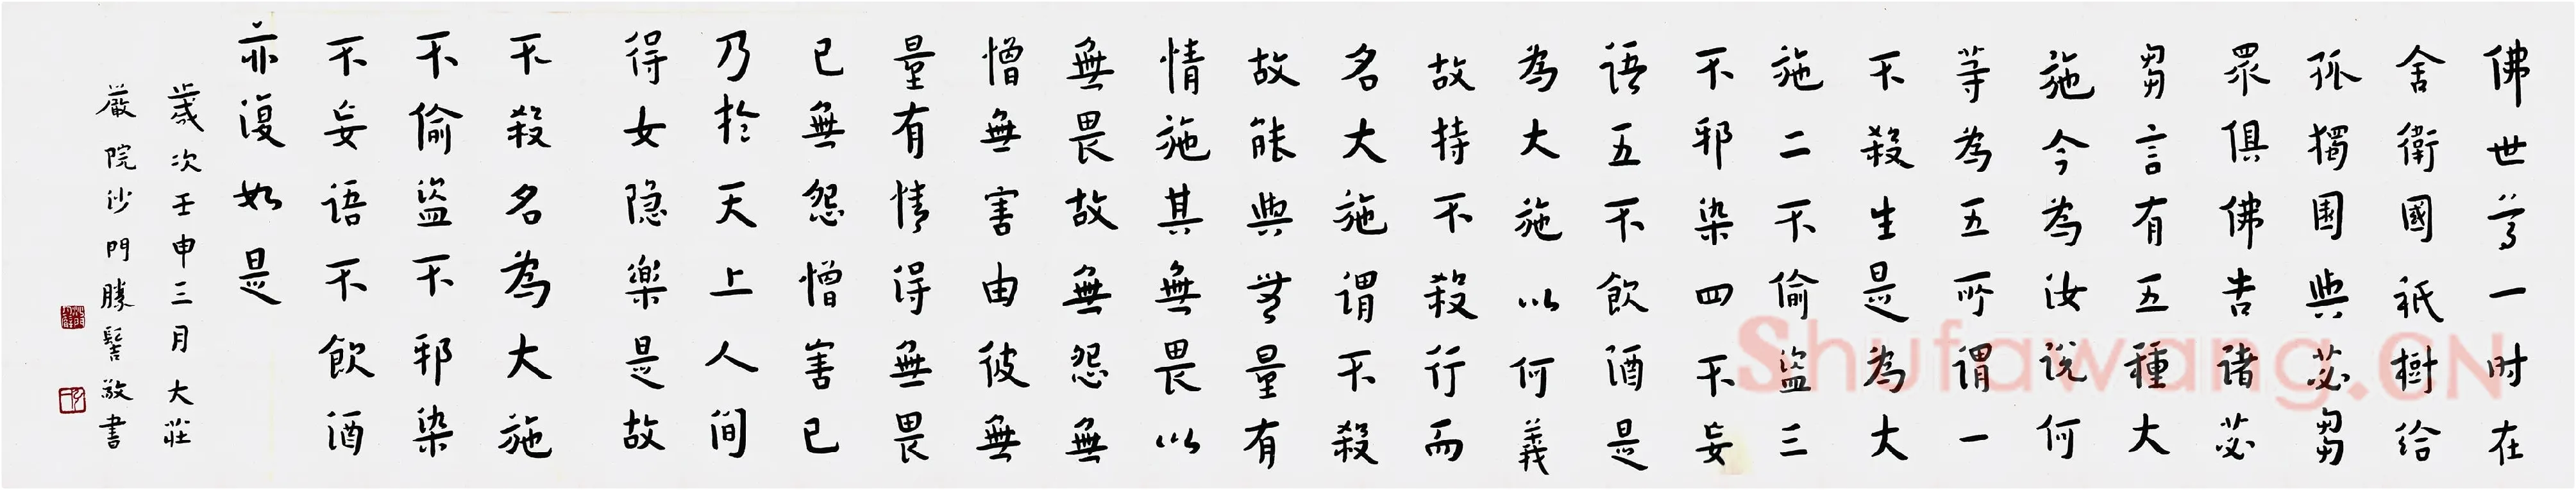 佛世尊一时在
舍衛國祇樹给
孤獨園與苾芻
眾俱佛告诸苾
芻言有五種大
施今為汝说何
等為五所谓一
不殺生是為大
施二不偷盜三
不邪染四不妄
语五不飲酒是
為大施以何義
故持不殺行而
名大施谓不殺
故能與無量有
情施其無畏以
無畏故無怨無
憎無害由彼無
量有情得無畏
已無怨憎害已
乃於天上人间
得安隐樂是故
不殺名為大施
不偷盜不邪染
不妄语不飲酒
亦復如是
歲次壬申三月大莊
嚴院沙門勝髻敬書
Shufawang.CN